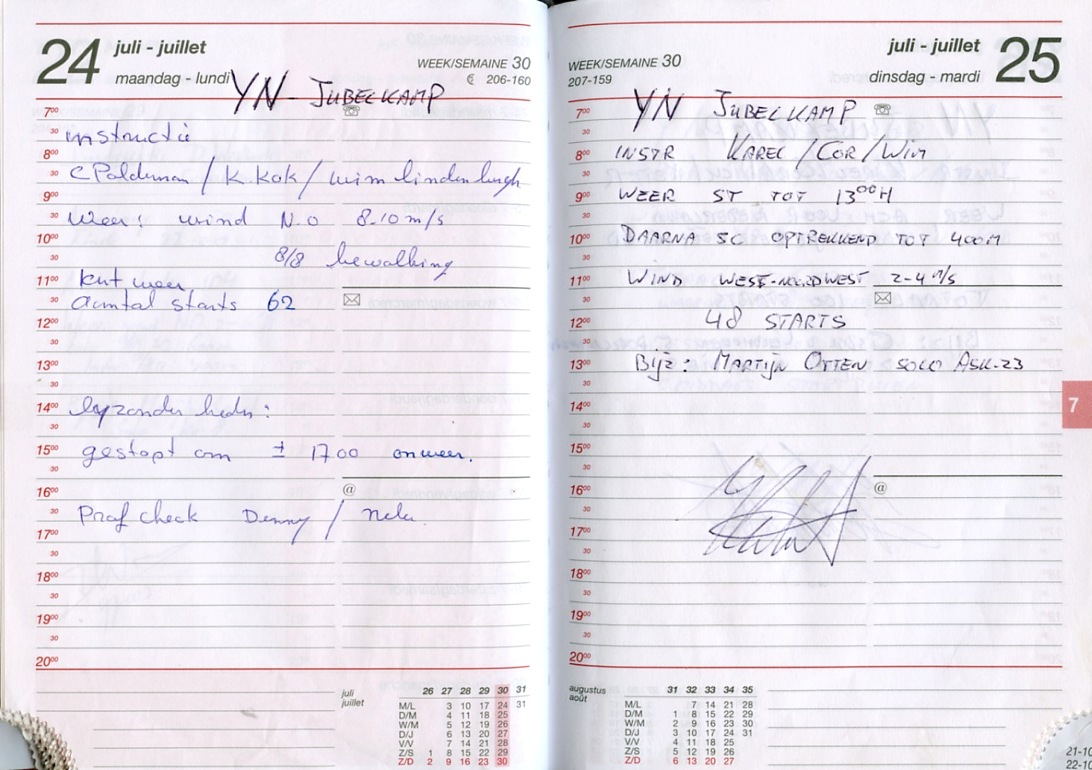 24
juli - juillet
maandag - lundi
WEEK/SEMAINE 30
€ 206-160
YN - JUBELKAMP
700
30 instructie
800
30 C Polderman / K. Kok / wim lindenburgh
900
30 Weer: wind N.O 8-10 m/s
1000
30 8/8 bewolking
1100 kut weer
30 Aantal starts 62
1200
30
1300
30
1400 byzonder heden:
30
1500 gestopt om ± 1700 onweer.
30
1600 @
30 Prof check Denny / Nela
1700
30
1800
30
1900
30
2000
juli
juillet
26 27 28 29 30 31
M/L 3 10 17 24 31
D/M 4 11 18 25
W/M 5 12 19 26
D/J 6 13 20 27
V/V 7 14 21 28
Z/S 1 8 15 22 29
Z/D 2 9 16 23 30
WEEK/SEMAINE 30
207-159
juli - juillet
dinsdag - mardi
25
700 YN JUBELKAMP
30
800 INSTR KAREL / COR / WIM
30
900 WEER ST TOT 1300H
30
1000 DAARNA SC OPTREKKEND TOT 400M
30
1100 WIND WEST-NOORDWEST 2-4 M/S
30
1200 48 STARTS
30
1300 Bijz: MARTIJN OTTEN SOLO ASK-23
30
1400
30
1500
30
1600 @
30
1700
30
1800
30
1900
30
2000
augustus
août
31 32 33 34 35
M/L 7 14 21 28
D/M 1 8 15 22 29
W/M 2 9 16 23 30
D/J 3 10 17 24 31
V/V 4 11 18 25
Z/S 5 12 19 26
Z/D 6 13 20 27
7
21-10